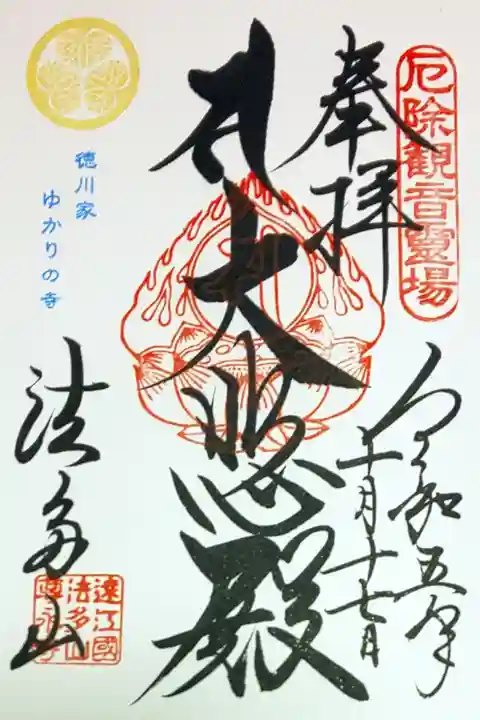 厄除観音霊場
奉拝
令和五年
十一月十七日
大悲殿
徳川家
ゆかりの寺
法多山
遠江國
法多山
尊永寺